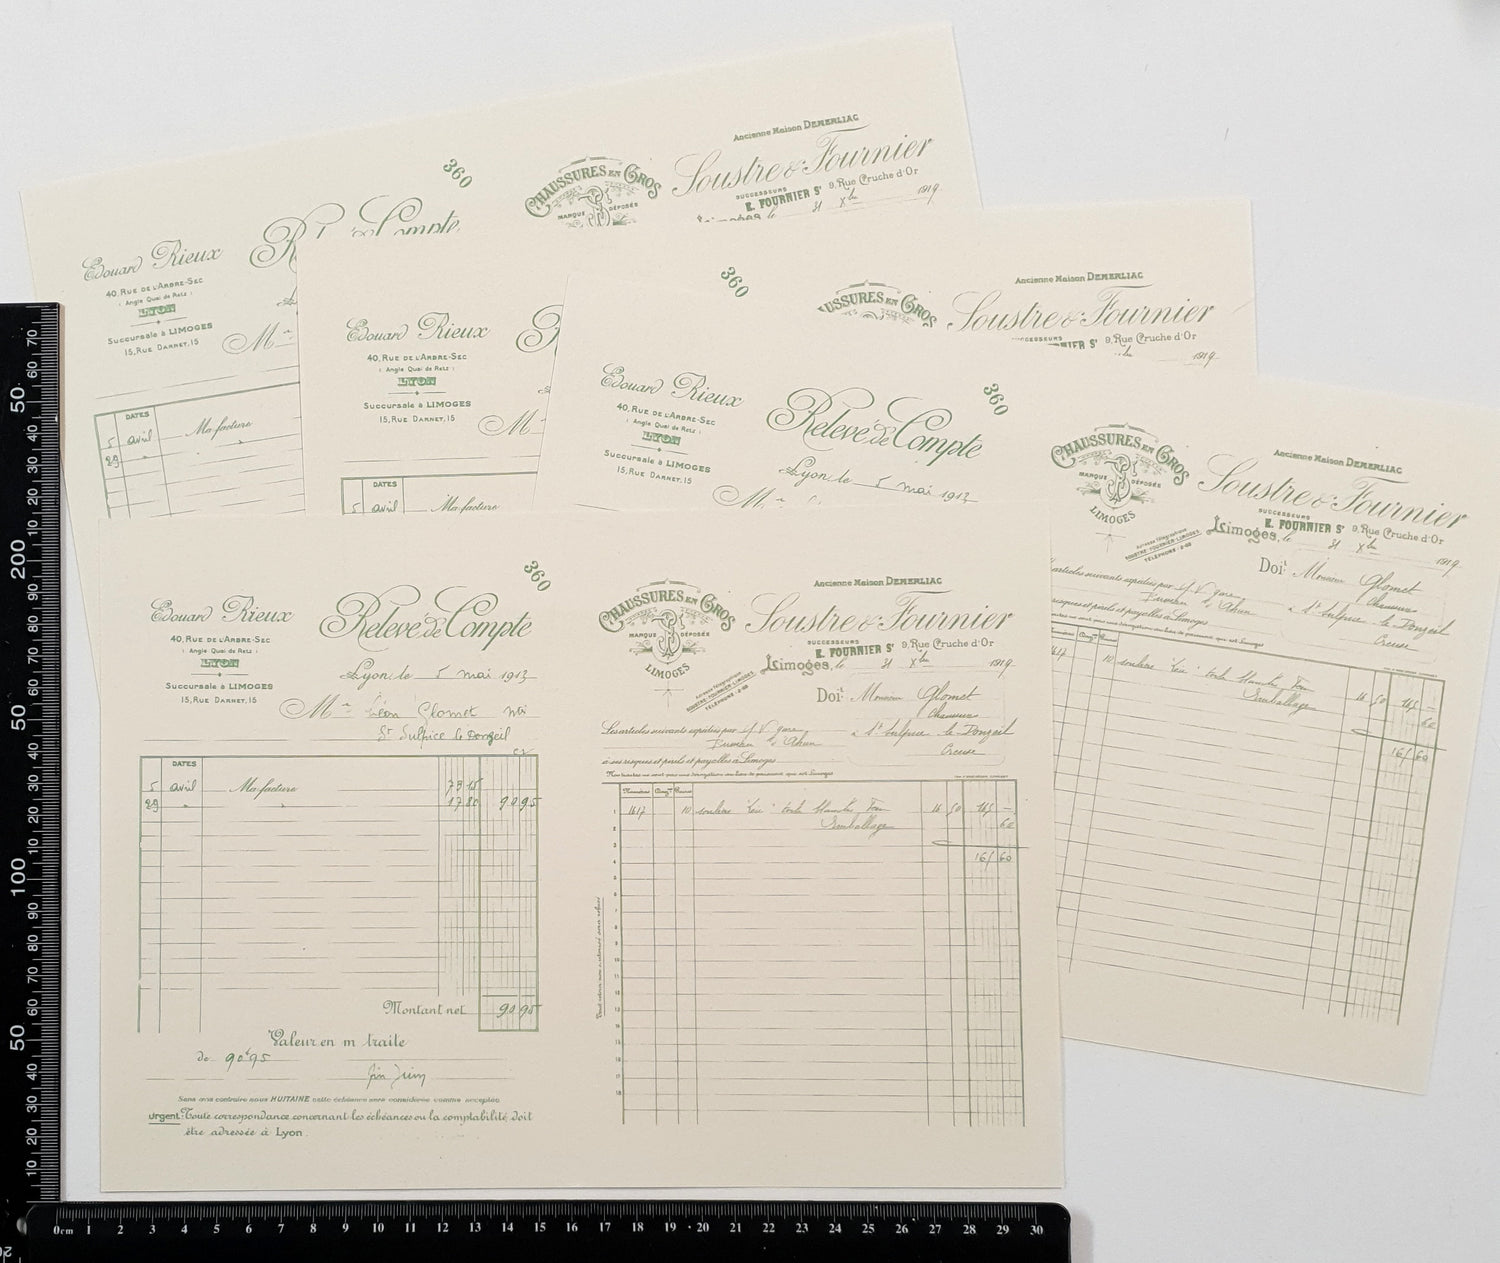 Ancienne Maison DEMERLIAC
360
CHAUSSURES EN GROS
Soustre & Fournier
SUCCESSEURS
E. FOURNIER Sr 9, Rue Cruche d'Or
MARQUE DÉPOSÉE
Limoges, le 31 Xbre 1919.
Edouard Rieux
Relevé de Compte
40, RUE DE L'ARBRE-SEC
( Angle Quai de Retz )
LYON
Succursale à LIMOGES
15, RUE DARNET, 15
M
DATES
5 avril Ma facture
29 "
Ancienne Maison DEMERLIAC
360
USSURES EN GROS
Soustre & Fournier
9, Rue Cruche d'Or
1919.
Edouard Rieux
40, RUE DE L'ARBRE-SEC
( Angle Quai de Retz )
LYON
Succursale à LIMOGES
15, RUE DARNET, 15
M
DATES
5 avril Ma facture
Edouard Rieux
360
Relevé de Compte
40, RUE DE L'ARBRE-SEC
( Angle Quai de Retz )
LYON
Succursale à LIMOGES
15, RUE DARNET, 15
Lyon, le 5 mai 1913
M
CHAUSSURES EN GROS
MARQUE DÉPOSÉE
LIMOGES
Ancienne Maison DEMERLIAC
Soustre & Fournier
SUCCESSEURS
E. FOURNIER Sr 9, Rue Cruche d'Or
Limoges, le 31 Xbre 1919.
Adresse Télégraphique
SOUSTRE-FOURNIER-LIMOGES
TÉLÉPHONE: 2-60
Doit Monsieur Glomet
Chaussures
articles suivants expédiés par
à St Sulpice le Donzeil
Creuse
risques et périls et payables à Limoges
10 souliers
Emballage
16 50 165 —
60
165 60
360
Edouard Rieux
Relevé de Compte
40, RUE DE L'ARBRE-SEC
( Angle Quai de Retz )
LYON
Succursale à LIMOGES
15, RUE DARNET, 15
Lyon, le 5 mai 1913
M Léon Glomet
St Sulpice le Donzeil
DATES
5 avril Ma facture 73 15
29 " 17 80 90 95
Montant net 90 95
Valeur en m traite
de 90f95
fin Juin
Sans avis contraire sous HUITAINE cette échéance sera considérée comme acceptée
Urgent: Toute correspondance concernant les échéances ou la comptabilité, doit
être adressée à Lyon.
Ancienne Maison DEMERLIAC
CHAUSSURES EN GROS
Soustre & Fournier
MARQUE DÉPOSÉE
SUCCESSEURS
E. FOURNIER Sr 9, Rue Cruche d'Or
LIMOGES
Limoges, le 31 Xbre 1919.
Adresse Télégraphique
SOUSTRE-FOURNIER-LIMOGES
TÉLÉPHONE: 2-60
Doit Monsieur Glomet
Chaussures
Les articles suivants expédiés par
à St Sulpice le Donzeil
Creuse
à ses risques et périls et payables à Limoges
Nos traites ne sont pas une dérogation au lieu de paiement qui est Limoges
1617 10 souliers
Emballage
16 50 165 —
60
165 60
50
100
50
200
50
0cm 1 2 3 4 5 6 7 8 9 10 11 12 13 14 15 16 17 18 19 20 21 22 23 24 25 26 27 28 29 30